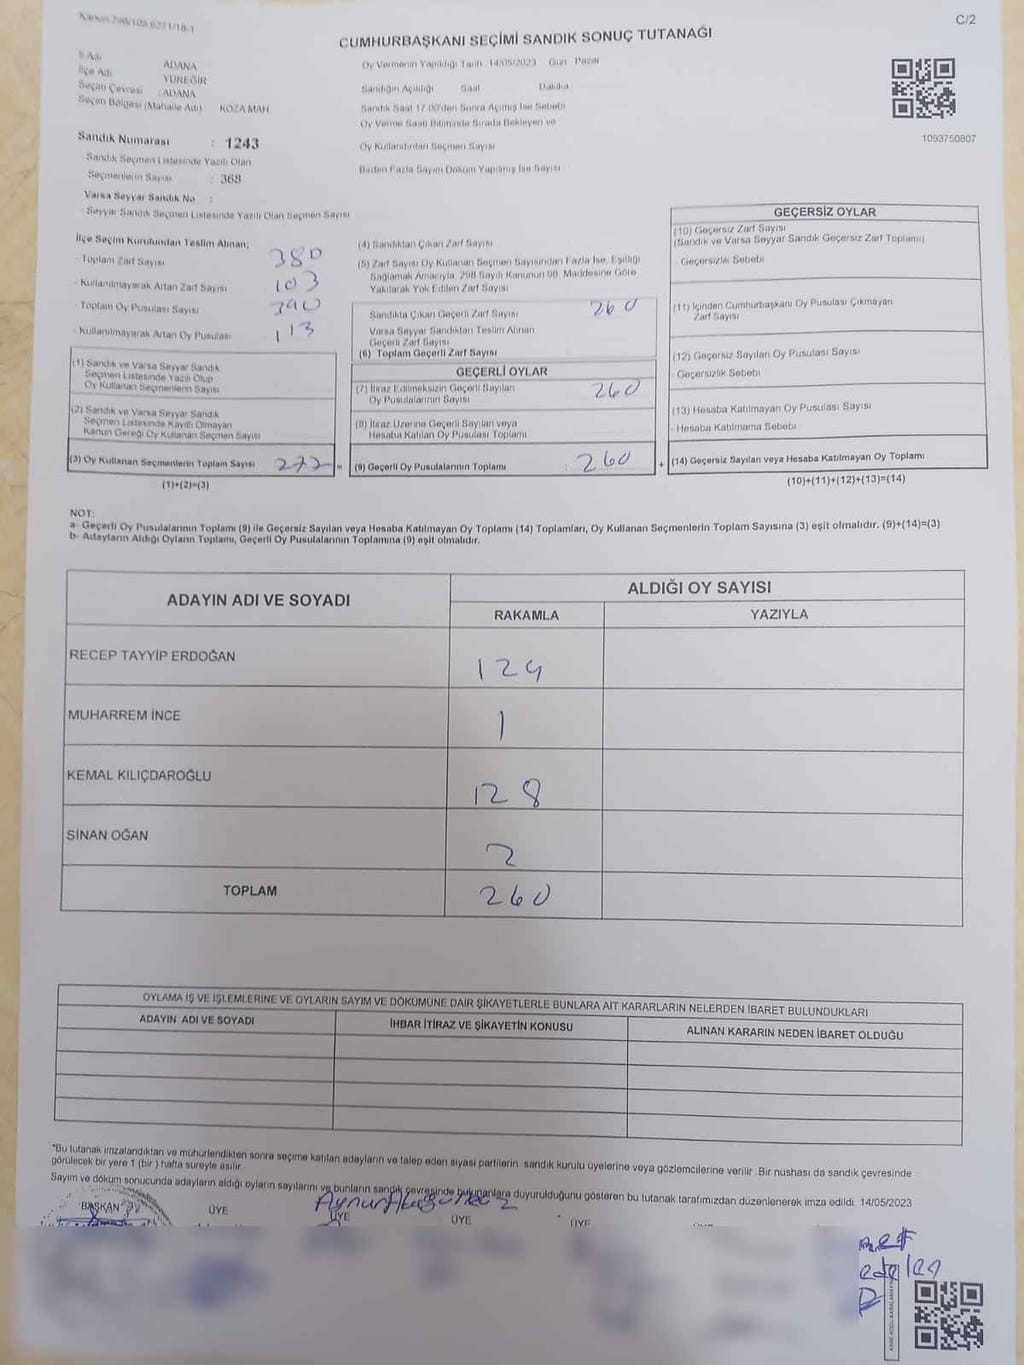 C/2
CUMHURBAŞKANI SEÇİMİ SANDIK SONUÇ TUTANAĞI
İl Adı ADANA
İlçe Adı YÜREĞİR
Seçim Çevresi : ADANA
Seçim Bölgesi (Mahalle Adı) KOZA MAH
Sandık Numarası : 1243
Sandık Seçmen Listesinde Yazılı Olan
Seçmenlerin Sayısı : 368
Varsa Seyyar Sandık No :
- Seyyar Sandık Seçmen Listesinde Yazılı Olan Seçmen Sayısı
Oy Vermenin Yapıldığı Tarih 14/05/2023 Gün Pazar
Sandığın Açıldığı Saat Dakika
Sandık Saat 17:00'den Sonra Açmış İse Sebebi
Oy Verme Saati Bitiminde Sırada Bekleyen ve
Oy Kullandırılan Seçmen Sayısı
Birden Fazla Sayım Döküm Yapılmış İse Sayısı
1093750807
İlçe Seçim Kurulundan Teslim Alınan;
- Toplam Zarf Sayısı 380
- Kullanılmayarak Artan Zarf Sayısı 103
- Toplam Oy Pusulası Sayısı 390
- Kullanılmayarak Artan Oy Pusulası 113
(1) Sandık ve Varsa Seyyar Sandık
Seçmen Listesinde Yazılı Olup
Oy Kullanan Seçmenlerin Sayısı
(2) Sandık ve Varsa Seyyar Sandık
Seçmen Listesinde Kayıtlı Olmayan
Kanun Gereği Oy Kullanan Seçmen Sayısı
(3) Oy Kullanan Seçmenlerin Toplam Sayısı 272 =
(1)+(2)=(3)
(4) Sandıktan Çıkan Zarf Sayısı
(5) Zarf Sayısı Oy Kullanan Seçmen Sayısından Fazla İse, Eşitliği
Sağlamak Amacıyla, 298 Sayılı Kanunun 98. Maddesine Göre
Yakılarak Yok Edilen Zarf Sayısı
Sandıkta Çıkan Geçerli Zarf Sayısı 260
Varsa Seyyar Sandıktan Teslim Alınan
Geçerli Zarf Sayısı
(6) Toplam Geçerli Zarf Sayısı
GEÇERLİ OYLAR
(7) İtiraz Edilmeksizin Geçerli Sayılan
Oy Pusulalarının Sayısı 260
(8) İtiraz Üzerine Geçerli Sayılan veya
Hesaba Katılan Oy Pusulası Toplamı
(9) Geçerli Oy Pusulalarının Toplamı : 260 +
GEÇERSİZ OYLAR
(10) Geçersiz Zarf Sayısı
(Sandık ve Varsa Seyyar Sandık Geçersiz Zarf Toplamı)
- Geçersizlik Sebebi
(11) İçinden Cumhurbaşkanı Oy Pusulası Çıkmayan
Zarf Sayısı
(12) Geçersiz Sayılan Oy Pusulası Sayısı
- Geçersizlik Sebebi
(13) Hesaba Katılmayan Oy Pusulası Sayısı
- Hesaba Katılmama Sebebi
(14) Geçersiz Sayılan veya Hesaba Katılmayan Oy Toplamı
(10)+(11)+(12)+(13)=(14)
NOT:
a- Geçerli Oy Pusulalarının Toplamı (9) ile Geçersiz Sayılan veya Hesaba Katılmayan Oy Toplamı (14) Toplamları, Oy Kullanan Seçmenlerin Toplam Sayısına (3) eşit olmalıdır. (9)+(14)=(3)
b- Adayların Aldığı Oyların Toplamı, Geçerli Oy Pusulalarının Toplamına (9) eşit olmalıdır.
ADAYIN ADI VE SOYADI ALDIĞI OY SAYISI
RAKAMLA YAZIYLA
RECEP TAYYİP ERDOĞAN 129
MUHARREM İNCE 1
KEMAL KILIÇDAROĞLU 128
SİNAN OĞAN 2
TOPLAM 260
OYLAMA İŞ VE İŞLEMLERİNE VE OYLARIN SAYIM VE DÖKÜMÜNE DAİR ŞİKAYETLERLE BUNLARA AİT KARARLARIN NELERDEN İBARET BULUNDUKLARI
ADAYIN ADI VE SOYADI İHBAR İTİRAZ VE ŞİKAYETİN KONUSU ALINAN KARARIN NEDEN İBARET OLDUĞU
*Bu tutanak imzalandıktan ve mühürlendikten sonra seçime katılan adayların ve talep eden siyasi partilerin sandık kurulu üyelerine veya gözlemcilerine verilir. Bir nüshası da sandık çevresinde
görülecek bir yere 1 (bir) hafta süreyle asılır
Sayım ve döküm sonucunda adayların aldığı oyların sayılarını ve bunların sandık çevresinde bulunanlara duyurulduğunu gösteren bu tutanak tarafımızdan düzenlenerek imza edildi. 14/05/2023
BAŞKAN ÜYE ÜYE ÜYE ÜYE